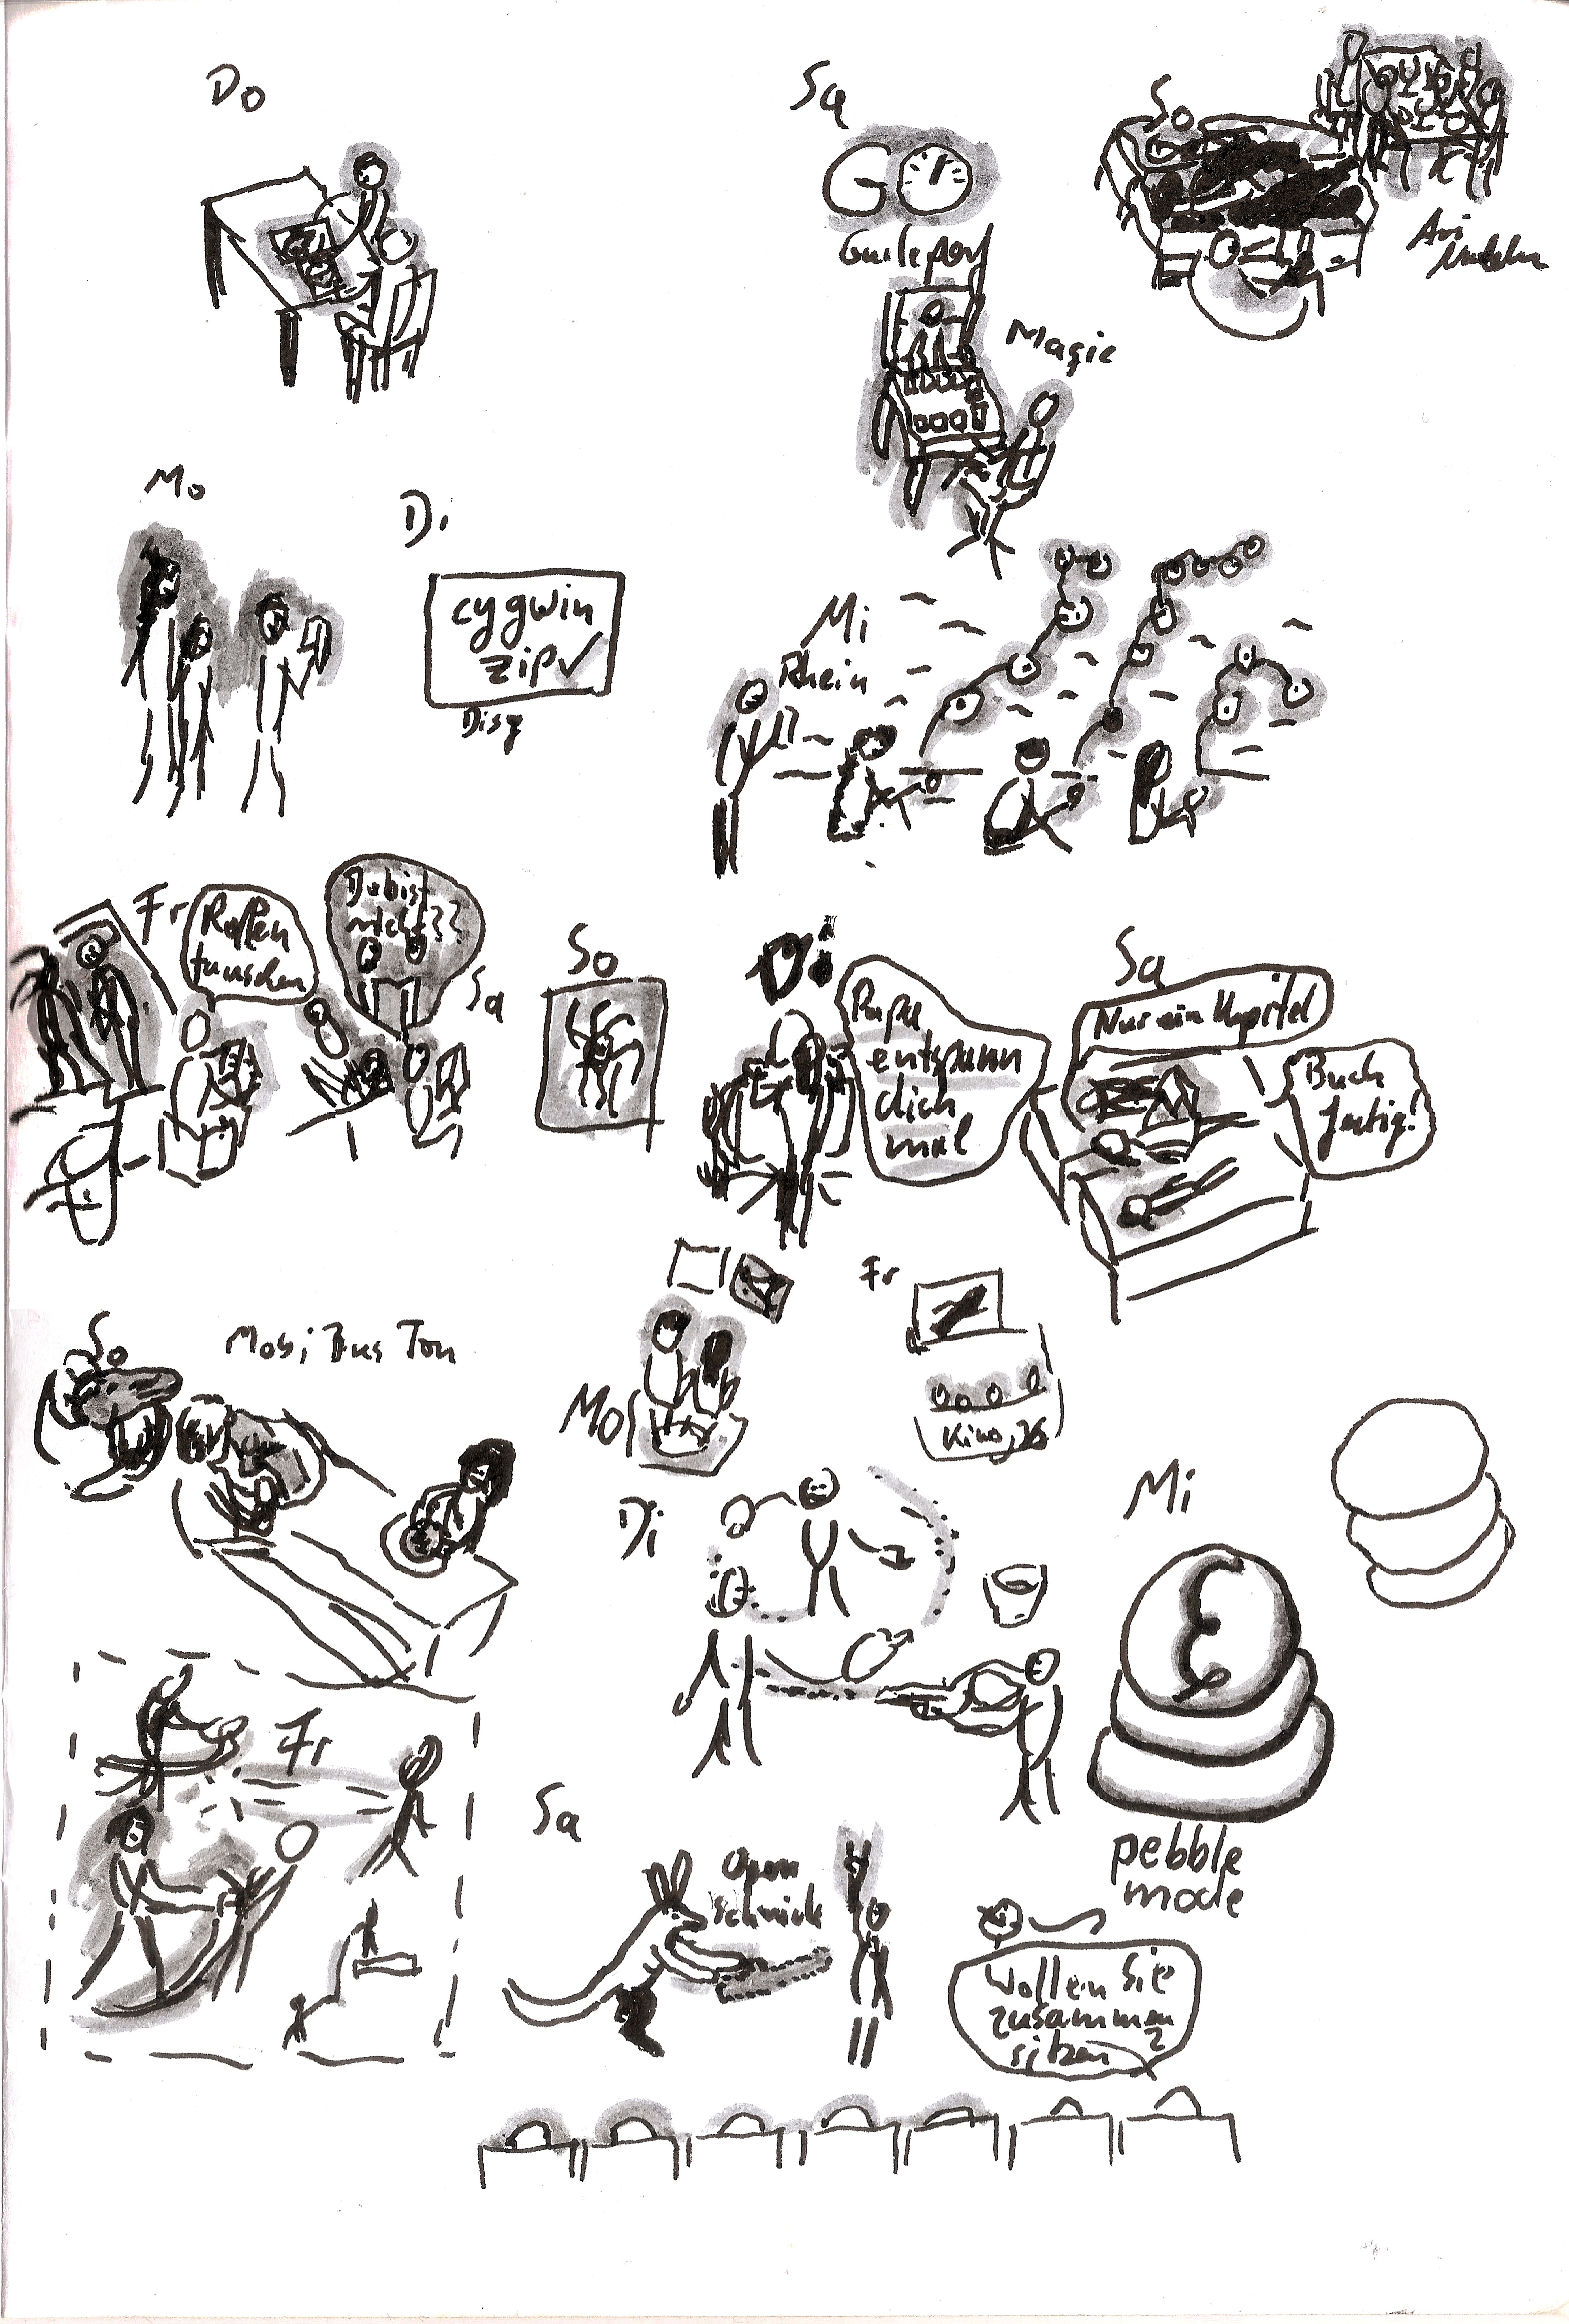 Do
Sa
GO
So
Magic
Mo
Di
cygwin
zip✓
Disy
Mi
Rhein
Fr
Rollen
tauschen
Du bist
nicht??
Sa
So
Di
Papa
entspann
dich
mal
Sa
Nur ein Kapitel
Buch
fertig!
So
Mobi Bus Ton
Mo
Fr
Kino
Di
Mi
pebble
mode
Fr
Sa
Open
Schnick
Wollen Sie
zusammen
sitzen?